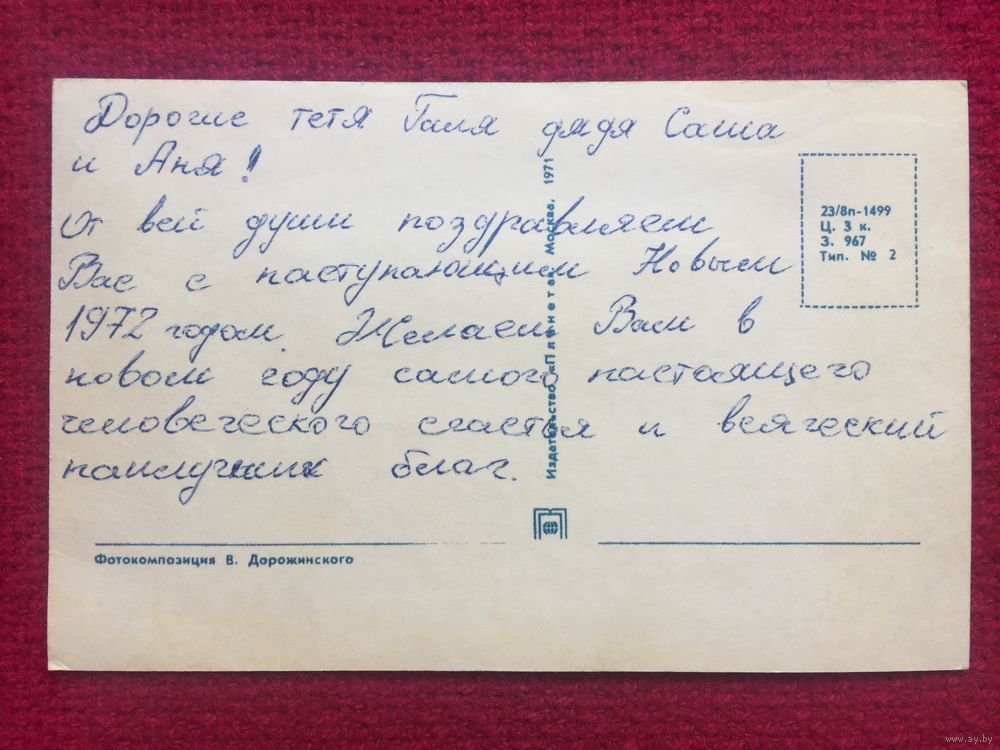 Дорогие тетя Галя дядя Саша
и Аня!
От всей души поздравляем
Вас с наступающим Новым
1972 годом. Желаем Вам в
новом году самого настоящего
человеческого счастья и всяческий
наилучших благ.
Издательство «Планета» Москва, 1971
23/8п-1499
Ц. 3 к.
З. 967
Тип. № 2
Фотокомпозиция В. Дорожинского
www.ay.by